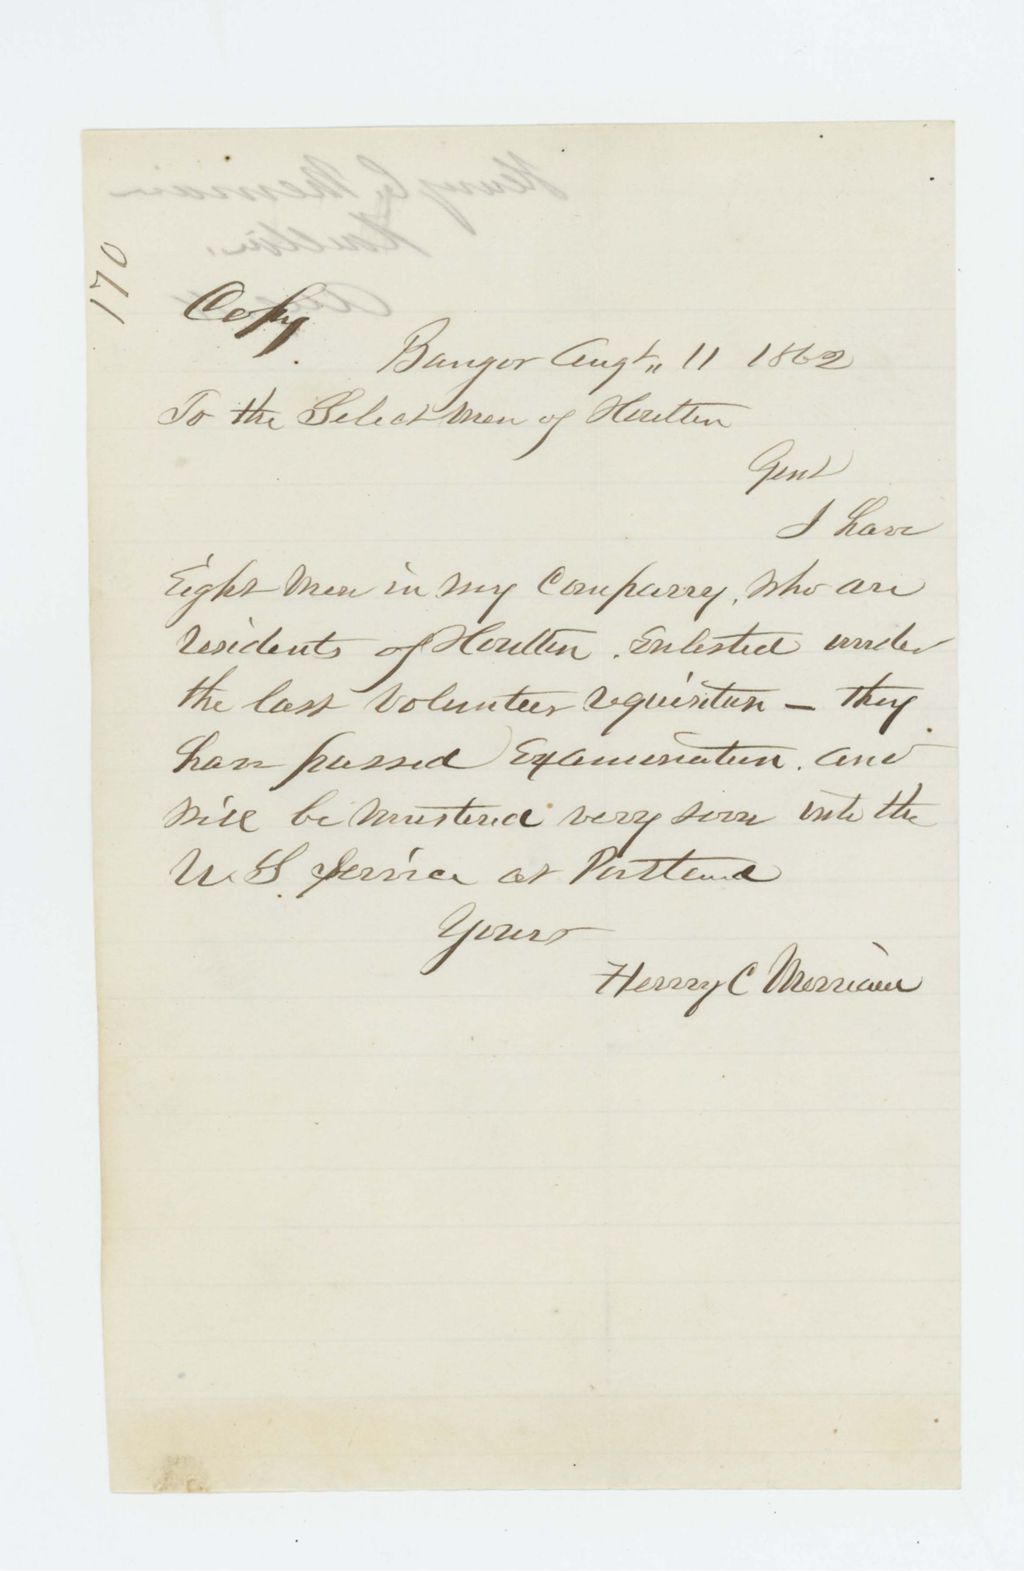 170
Copy
Bangor Augt 11 1862
To the Select Men of Houlton
Gent
I have
Eight Men in my Company, who are
residents of Houlton. Enlisted under
the last Volunteer requisition — they
have passed Examination. and
will be mustered very soon into the
U.S. Service at Portland
Yours
Henry C Merriam